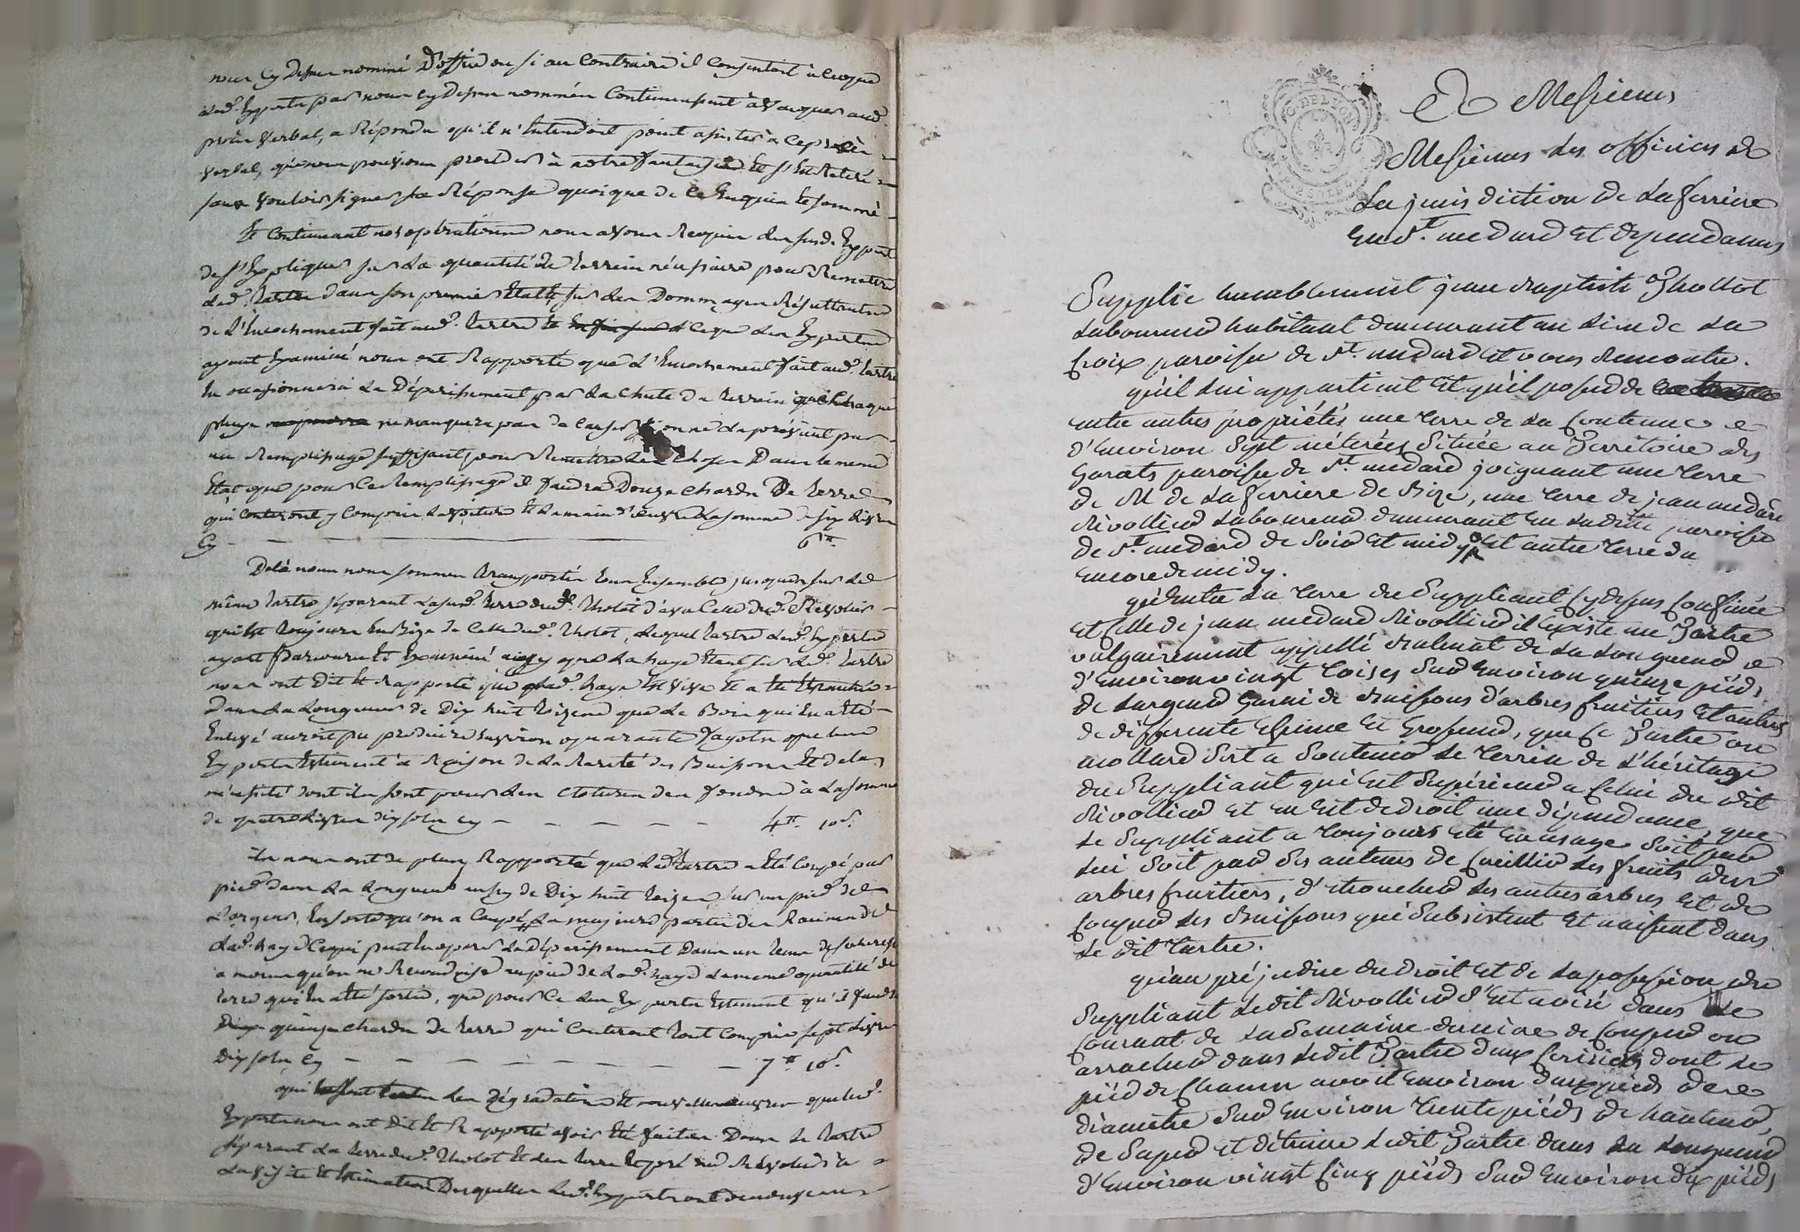 nous cy dessus nommé d'office ou si au contraire il consentoit à ce que
led. Experts par nous cy dessus nommés continuassent à vacquer aud.
procès verbal, a Répondu qu'il n'entendoit point assister à ce procès
verbal, que nous pouvions procéder à notre fantaisie Et s'est Retiré
sans vouloir signer sa Réponse quoique de ce Enquis Et sommé
Et continuant nos opérations nous avons Requis les susd. Experts
de s'Expliquer sur la quantité de terrein nécessaire pour Remettre
led. tartre dans son premier Etat, sur les Dommages Résultants
de l'Encochement fait aud. tartre Et à ce que les Experts
ayant Examiné nous ont Rapporté que l'Encochement fait aud. tartre
En occasionnera le Dépérissement par la chute du terrein que chaque
pluye ne manquera pas de causer si on ne le prévient par
un Remplissage suffisant pour Remettre les choses Dans le même
Etat que pour ce Remplissage il faudra Douze chards De terre
qui couteront y compris la voiture Et la main d'œuvre la somme de six livres
Cy — 6 ₶.
Delà nous nous sommes transportés tous Ensemble jusques sur le
même tartre séparant la susd. terre dud. Tholot d'avec celle dud. Rivolier
qui Est toujours En Bize de celle dud. Tholot, lequel tartre led. Experts
ayant parcouru Et Examiné ainsy que la haye Etant sur led. tartre
nous ont Dit Et Rapporté que lad. haye Est vive Et a été Ebranchée
Dans la longueur de Dix huit toizes que le Bois qui En a été
Enlevé auroit pu produire Environ quarante fagots que les
Experts Estiment à Raison de la Rareté des Buissons Et de la
nécessité dont ils sont pour les clotures des fonds à la somme
de quatre livres dix sols Cy — — — — — 4 ₶. 10 s.
Ils nous ont de plus Rapporté que led. tartre a été coupé par
pied dans la longueur de Dix huit toizes, sur un pied de
largeur, Ensorte qu'on a coupé la majeure partie des Racines de
lad. haye ce qui peut En opérer le dépérissement Dans un tems de sécheresse
a moins qu'on ne Reconduise au pied de lad. haye la même quantité de
terre qui En a été sortie, que pour ce les Experts Estiment qu'il faudra
quinze chards de terre qui couteront tout compris sept livres
Dix sols Cy — — — — — — 7 ₶ 10 s.
qui les dégradations Et nouvelles œuvres que led.
Experts nous ont dit Et Rapporté avoir Eté faites Dans le tartre
séparant la terre dud. Tholot Et des terres Rivolier à
la visite Et Estimation Desquelles led. Experts ont
A Messieurs
Messieurs les officiers de
La jurisdiction de Laferriere
En St. medard Et dependances
Supplie humblement jean Baptiste Thollot
Laboureur habitant demeurant au Lieu de La
Croix paroisse de St. medard Et vous Remontre.
qu'il Lui appartient Et qu'il possede
entre autres propriétés une terre de La Contenue
d'Environ Sept méterées Située au Territoire des
Garats paroisse de St. medard joignant une terre
de M. de Laferriere de Bize, une terre de jean medard
Rivollier Laboureur demeurant En Ladite paroisse
de St. medard de Soir Et midy Et autre terre du
encore de midy.
qu'Entre La terre du Suppliant Cy dessus Confinée
Et Celle de jean medard Rivollier il Existe un Tartre
vulgairement appellé de La Longueur
d'Environ vingt toises Sur Environ quinze pieds
de Largeur Garni de Buissons d'arbres fruitiers Et autres
de differente Espece Et Grosseur, que ce Tartre ou
mollard Sert a Soutenir Le Terrein de L'héritage
du Suppliant qui Est Supérieur a Celui du dit
Rivollier Et en Est de droit une dépendance que
Le Suppliant a toujours Eté En usage Soit par
Lui Soit par Ses auteurs de Cueillir Les fruits des
arbres fruitiers, d'ébrancher Les autres arbres Et de
Couper Les Buissons qui Subsistent Et naissent dans
Le dit Tartre.
qu'au préjudice du droit Et de La possession du
Suppliant Ledit Rivollier S'Est avisé dans Le
Courant de La Semaine derniere de Couper ou
arracher dans Ledit Tartre deux Cerisiers dont Le
pied de Chacun avoit Environ deux pieds de
diametre Sur Environ trente pieds de hauteur,
de Saper Et détruire Ledit Tartre dans La Longueur
d'Environ vingt Cinq pieds Sur Environ dix pieds